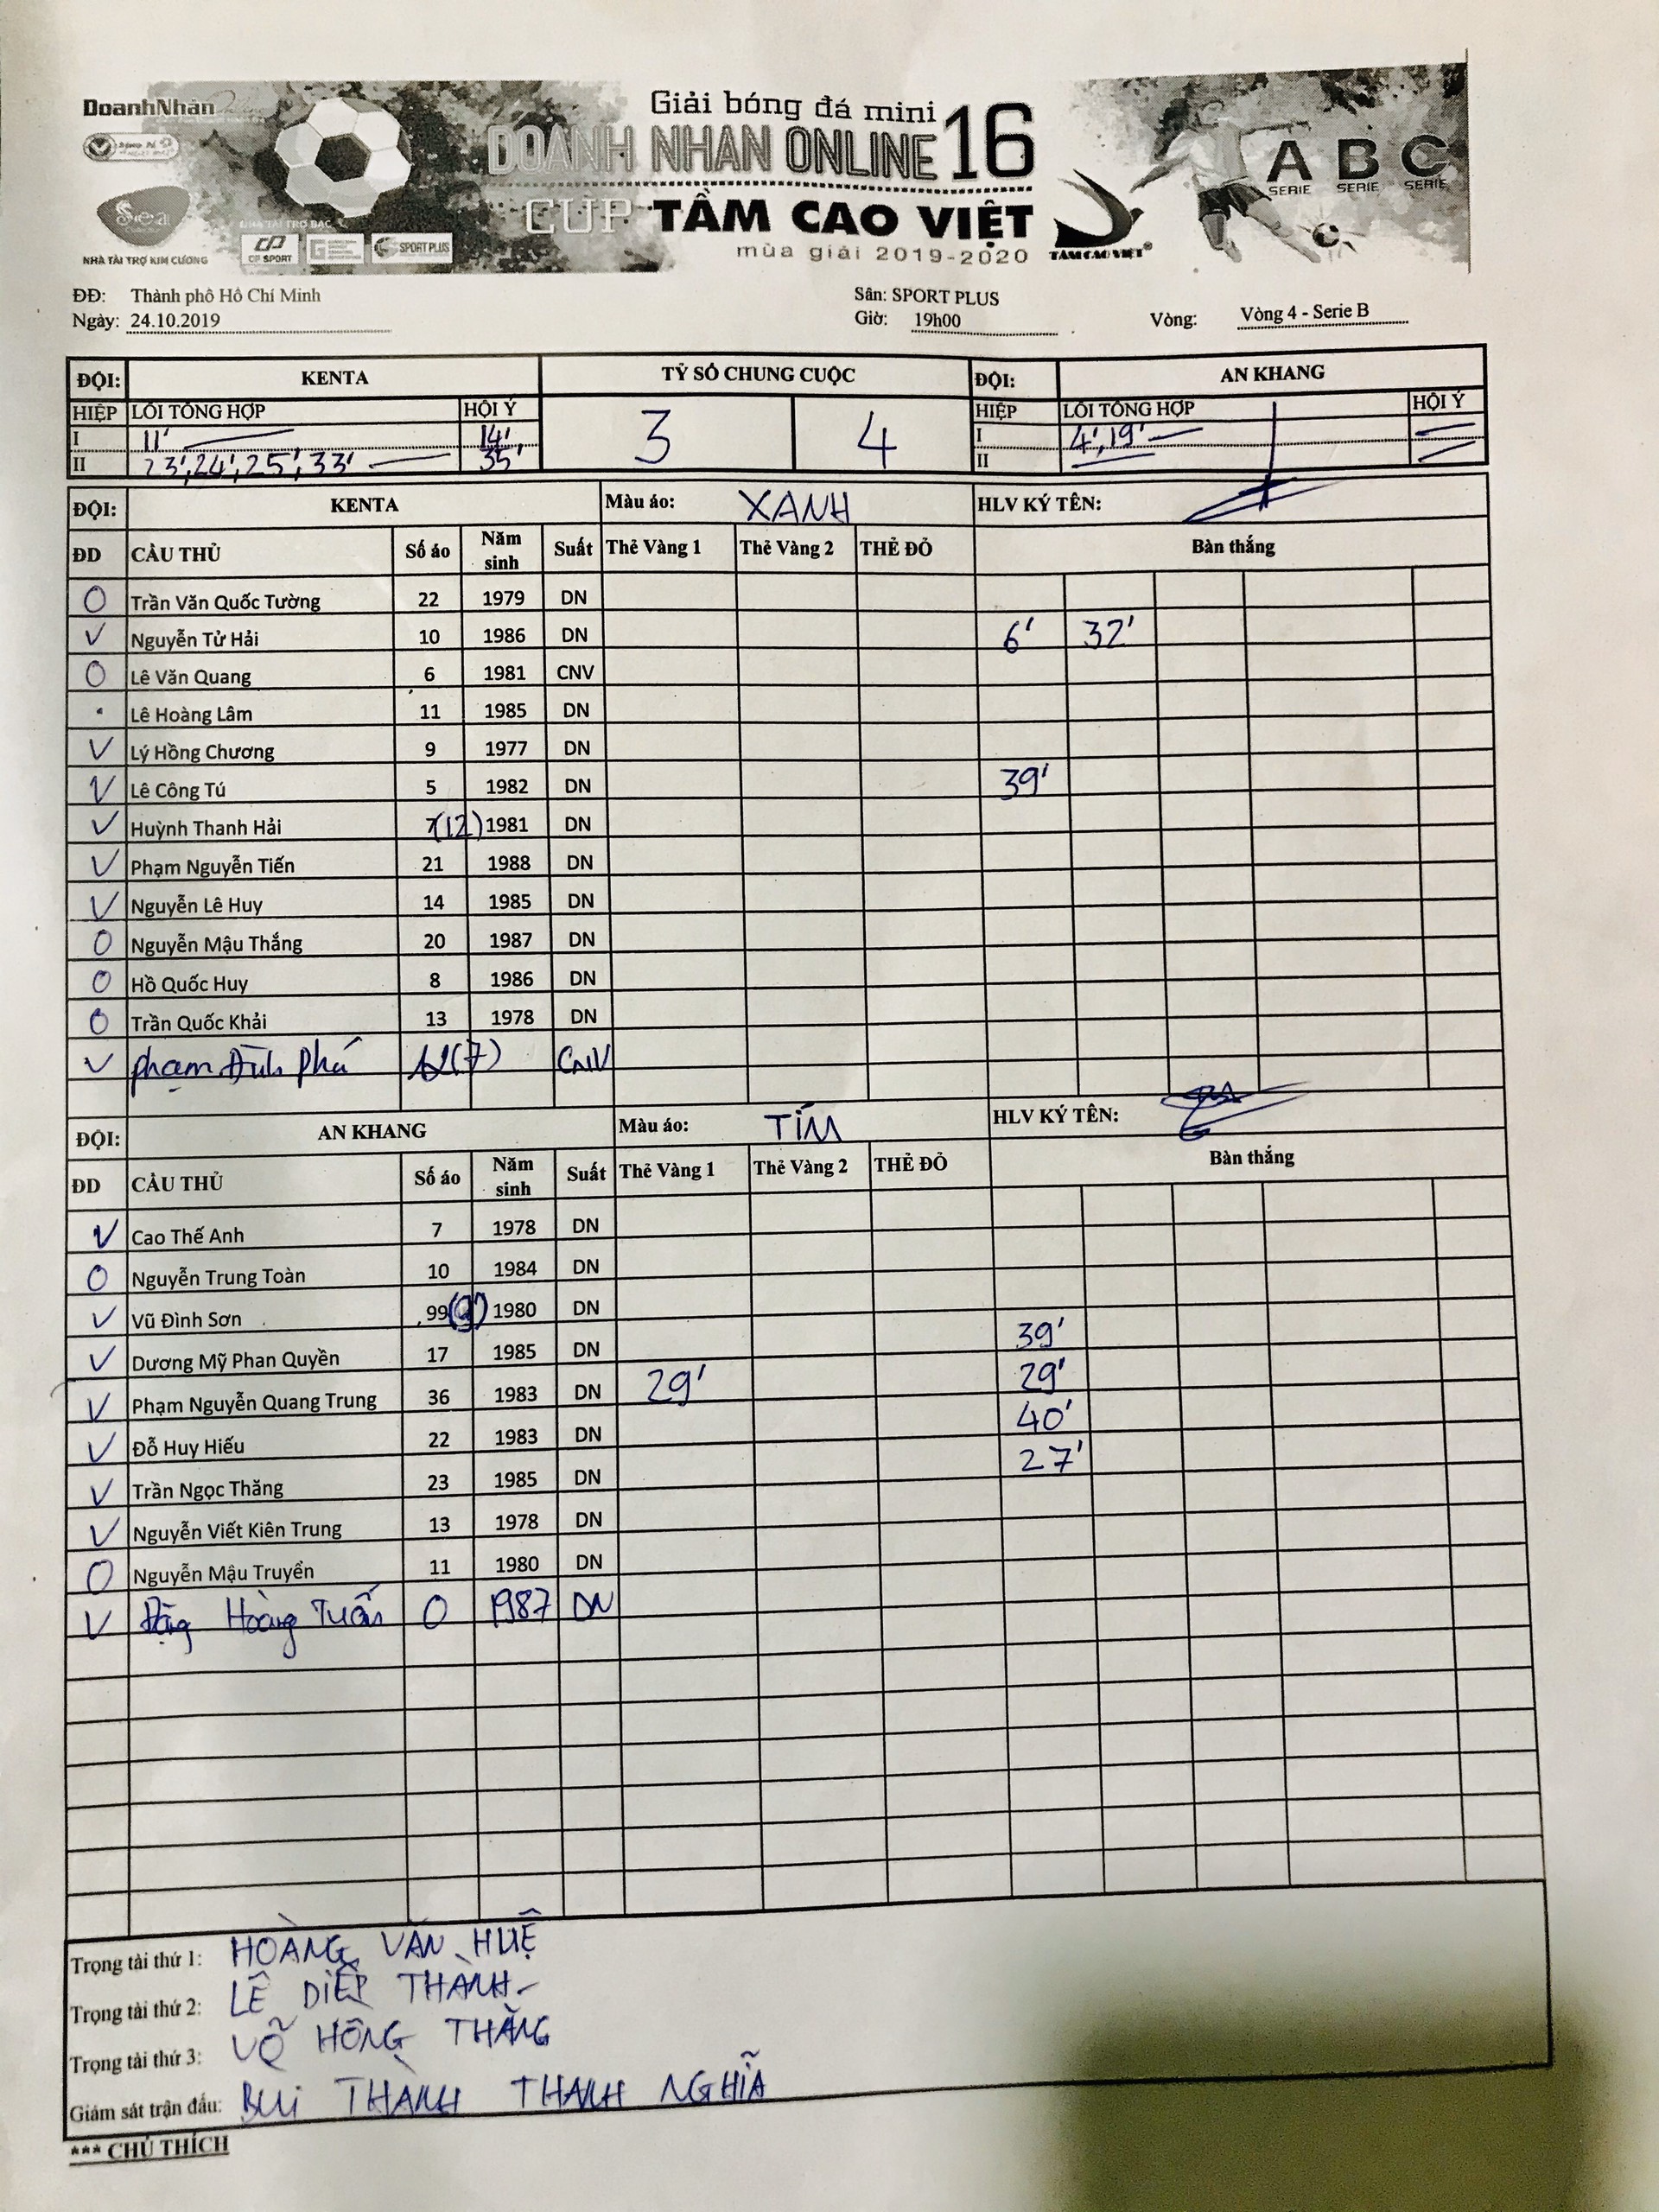 DoanhNhân Online
Giải bóng đá mini
DOANH NHAN ONLINE 16
CUP TẦM CAO VIỆT
mùa giải 2019-2020
Sea
NHÀ TÀI TRỢ BẠC
CP SPORT
SPORT PLUS
NHÀ TÀI TRỢ KIM CƯƠNG
TẦM CAO VIỆT
A SERIE B SERIE C SERIE
ĐĐ: Thành phố Hồ Chí Minh Sân: SPORT PLUS
Ngày: 24.10.2019 Giờ: 19h00 Vòng: Vòng 4 - Serie B
ĐỘI: KENTA TỶ SỐ CHUNG CUỘC ĐỘI: AN KHANG
HIỆP LỖI TỔNG HỢP HỘI Ý 3 4 HIỆP LỖI TỔNG HỢP HỘI Ý
I 11' 14' I 4', 19'
II 23', 24', 25', 33' 35' II
ĐỘI: KENTA Màu áo: XANH HLV KÝ TÊN:
ĐD CẦU THỦ Số áo Năm sinh Suất Thẻ Vàng 1 Thẻ Vàng 2 THẺ ĐỎ Bàn thắng
O Trần Văn Quốc Tường 22 1979 DN
V Nguyễn Tử Hải 10 1986 DN 6' 32'
O Lê Văn Quang 6 1981 CNV
Lê Hoàng Lâm 11 1985 DN
V Lý Hồng Chương 9 1977 DN
V Lê Công Tú 5 1982 DN 39'
V Huỳnh Thanh Hải 7(12) 1981 DN
V Phạm Nguyễn Tiến 21 1988 DN
V Nguyễn Lê Huy 14 1985 DN
O Nguyễn Mậu Thắng 20 1987 DN
O Hồ Quốc Huy 8 1986 DN
O Trần Quốc Khải 13 1978 DN
V Phạm Đình Phá (7) CNV
ĐỘI: AN KHANG Màu áo: TÍM HLV KÝ TÊN:
ĐD CẦU THỦ Số áo Năm sinh Suất Thẻ Vàng 1 Thẻ Vàng 2 THẺ ĐỎ Bàn thắng
V Cao Thế Anh 7 1978 DN
O Nguyễn Trung Toàn 10 1984 DN
V Vũ Đình Sơn 99 1980 DN
V Dương Mỹ Phan Quyền 17 1985 DN 39'
V Phạm Nguyễn Quang Trung 36 1983 DN 29' 29'
V Đỗ Huy Hiếu 22 1983 DN 40'
V Trần Ngọc Thăng 23 1985 DN 27'
V Nguyễn Viết Kiên Trung 13 1978 DN
O Nguyễn Mậu Truyển 11 1980 DN
V Đặng Hoàng Tuấn 0 1987 DN
Trọng tài thứ 1: HOÀNG VĂN HUỆ
Trọng tài thứ 2: LÊ DIỆP THÀNH
Trọng tài thứ 3: VÕ HỒNG THẮNG
Giám sát trận đấu: BÙI THÀNH THANH NGHĨA
*** CHÚ THÍCH